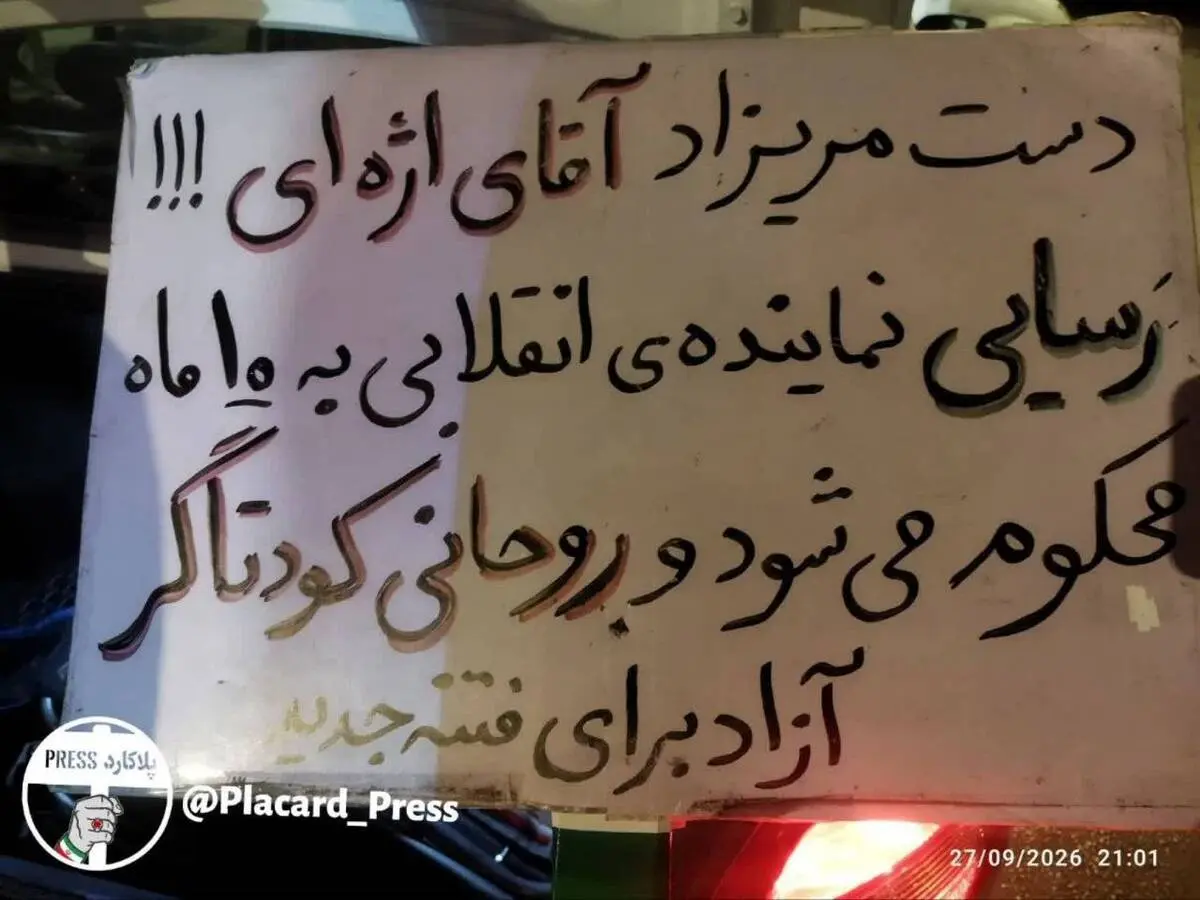 دست مریزاد آقای اژه ای !!!
رسایی نماینده‌ی انقلابی به ۱۵ ماه
محکوم می شود و روحانی کودتاگر
آزاد برای فتنه جدید
PRESS پلاکارد
@Placard_Press
27/09/2026 21:01